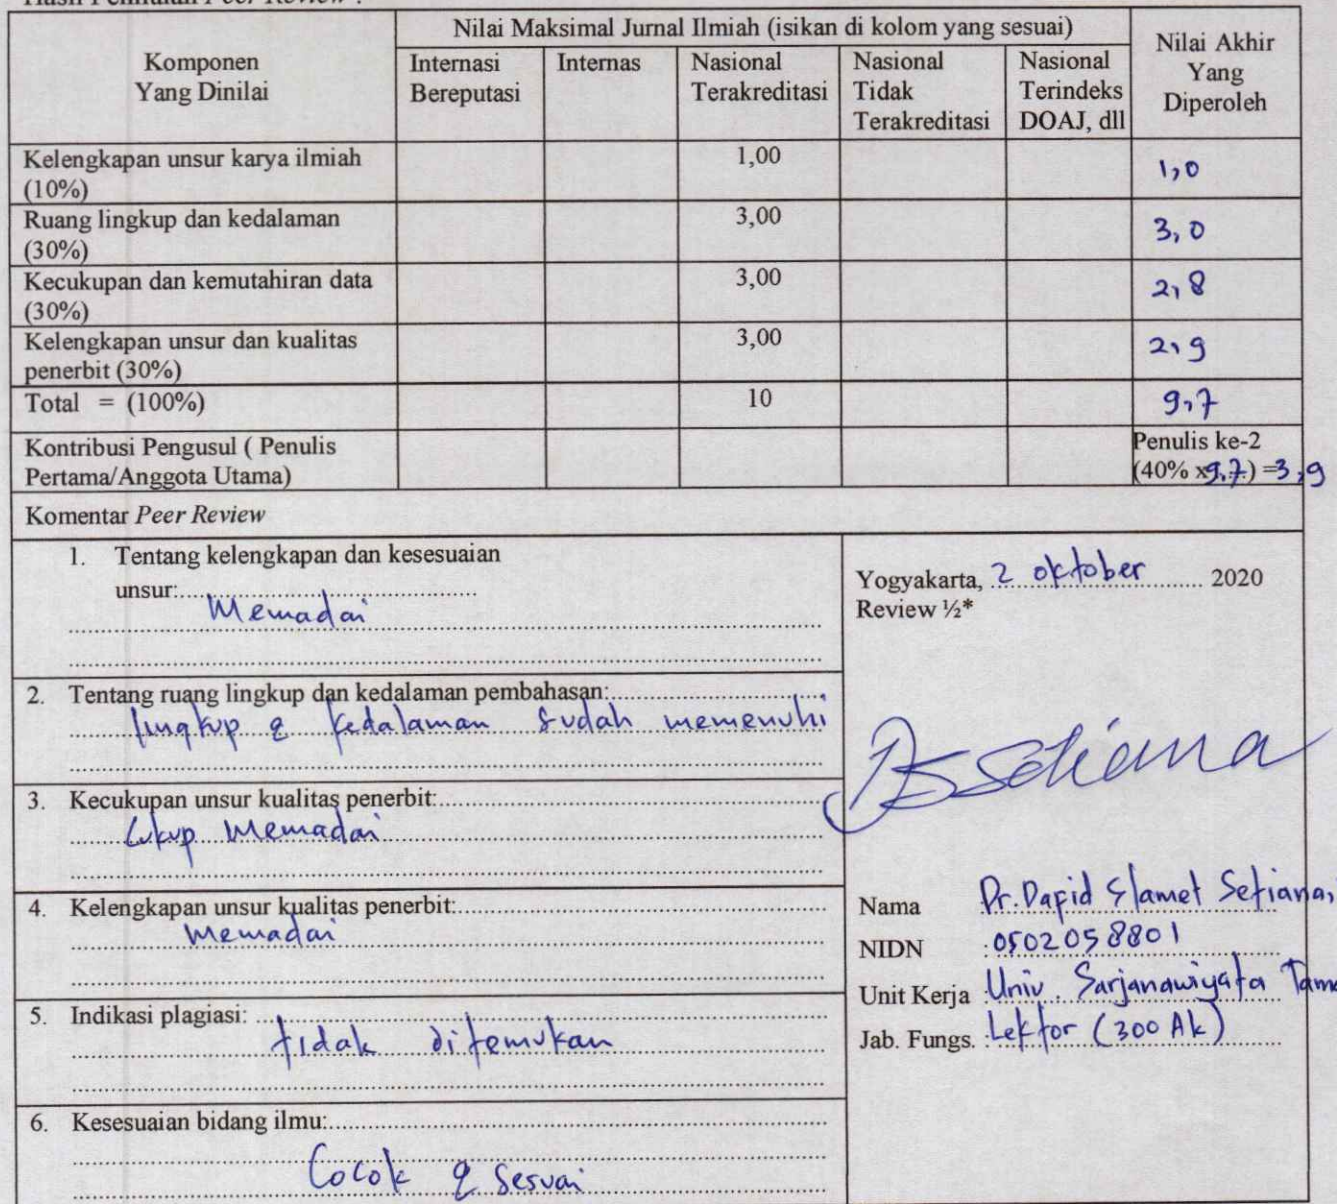 Hasil Penilaian Peer Review :
Komponen
Yang Dinilai
Nilai Maksimal Jurnal Ilmiah (isikan di kolom yang sesuai)
Nilai Akhir
Yang
Diperoleh
Internasi
Bereputasi
Internas
Nasional
Terakreditasi
Nasional
Tidak
Terakreditasi
Nasional
Terindeks
DOAJ, dll
Kelengkapan unsur karya ilmiah
(10%)
1,00
1,0
Ruang lingkup dan kedalaman
(30%)
3,00
3,0
Kecukupan dan kemutahiran data
(30%)
3,00
2,8
Kelengkapan unsur dan kualitas
penerbit (30%)
3,00
2,9
Total = (100%)
10
9,7
Kontribusi Pengusul ( Penulis
Pertama/Anggota Utama)
Penulis ke-2
(40% x9,7) =3,9
Komentar Peer Review
1. Tentang kelengkapan dan kesesuaian
unsur:
Memadai
2. Tentang ruang lingkup dan kedalaman pembahasan:
lingkup & kedalaman sudah memenuhi
3. Kecukupan unsur kualitas penerbit:
Cukup Memadai
4. Kelengkapan unsur kualitas penerbit:
Memadai
5. Indikasi plagiasi:
tidak ditemukan
6. Kesesuaian bidang ilmu:
Cocok & Sesuai
Yogyakarta, 2 oktober 2020
Review ½*
Setiana
Nama Dr. Dafid Slamet Setiana,
NIDN :0502058801
Unit Kerja Univ. Sarjanawiyata Tama
Jab. Fungs. :Lektor (300 Ak)